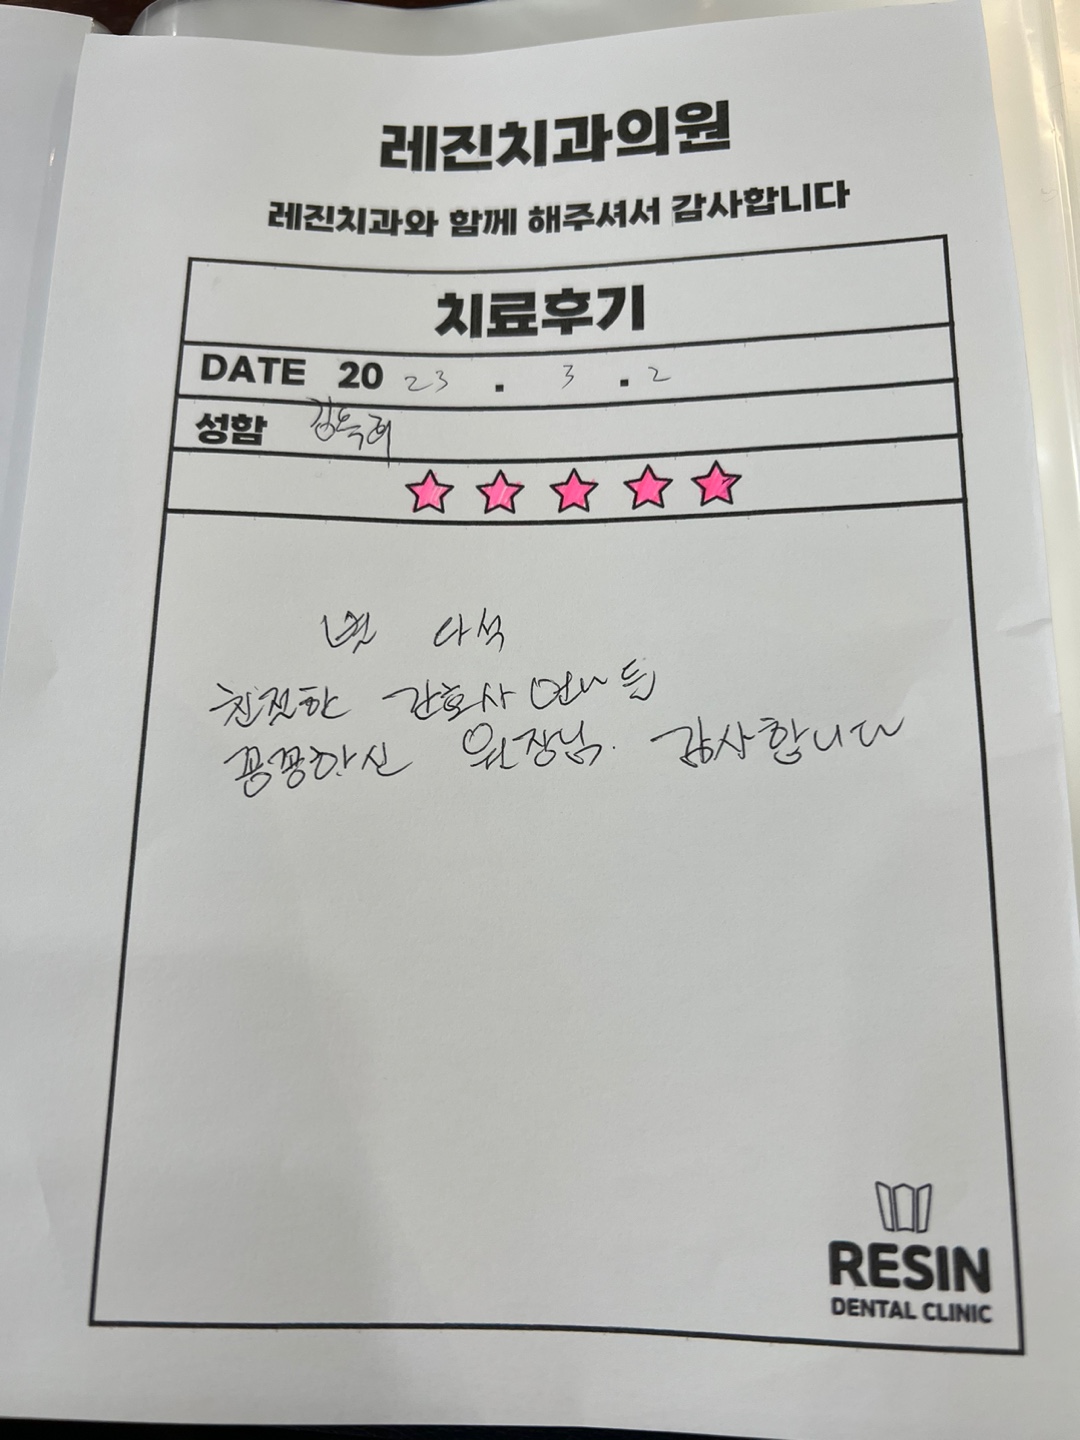 레진치과의원
레진치과와 함께 해주셔서 감사합니다
치료후기
DATE 2023 . 3 . 2
성함 김옥희
별 다석
친절한 간호사 언니들
꼼꼼하신 원장님. 감사합니다
RESIN
DENTAL CLINIC